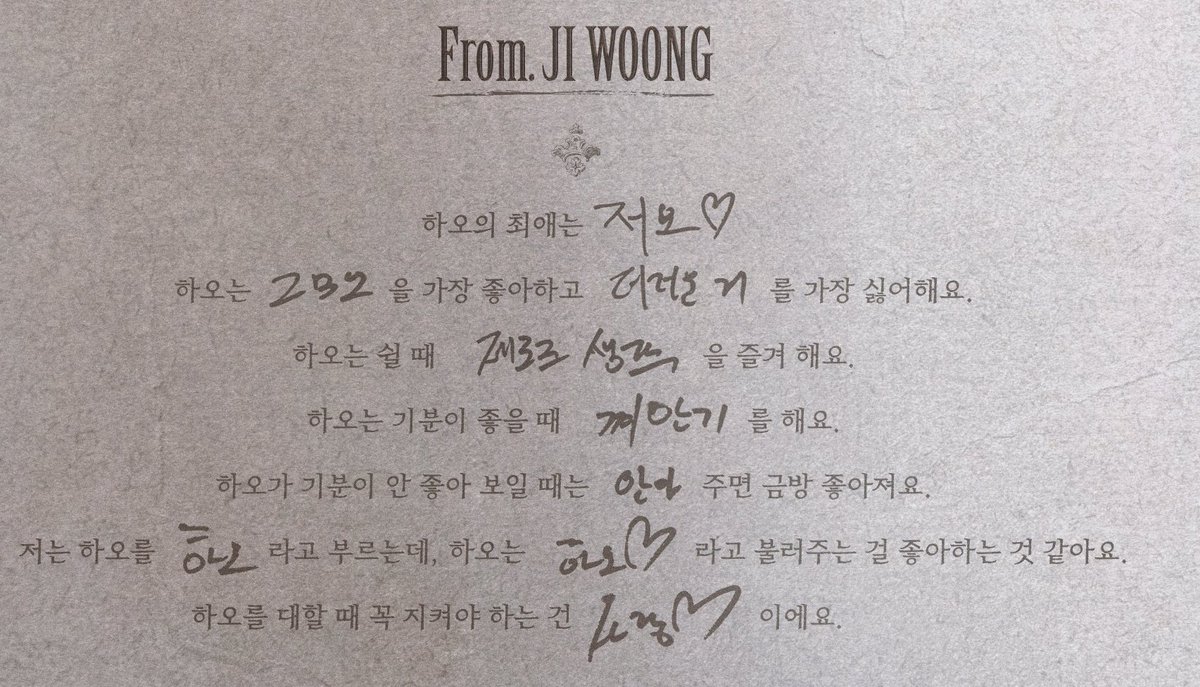 From. JI WOONG
하오의 최애는 저요♡
하오는 을 가장 좋아하고 더러운 거 를 가장 싫어해요.
하오는 쉴 때 제로즈 생각 을 즐겨 해요.
하오는 기분이 좋을때 껴안기 를 해요.
하오가 기분이 안 좋아 보일 때는 안아 주면 금방 좋아져요.
저는 하오를 라고 부르는데, 하오는 하오♡ 라고 불러주는 걸 좋아하는 것 같아요.
하오를 대할 때 꼭 지켜야 하는 건 사랑♡ 이에요.